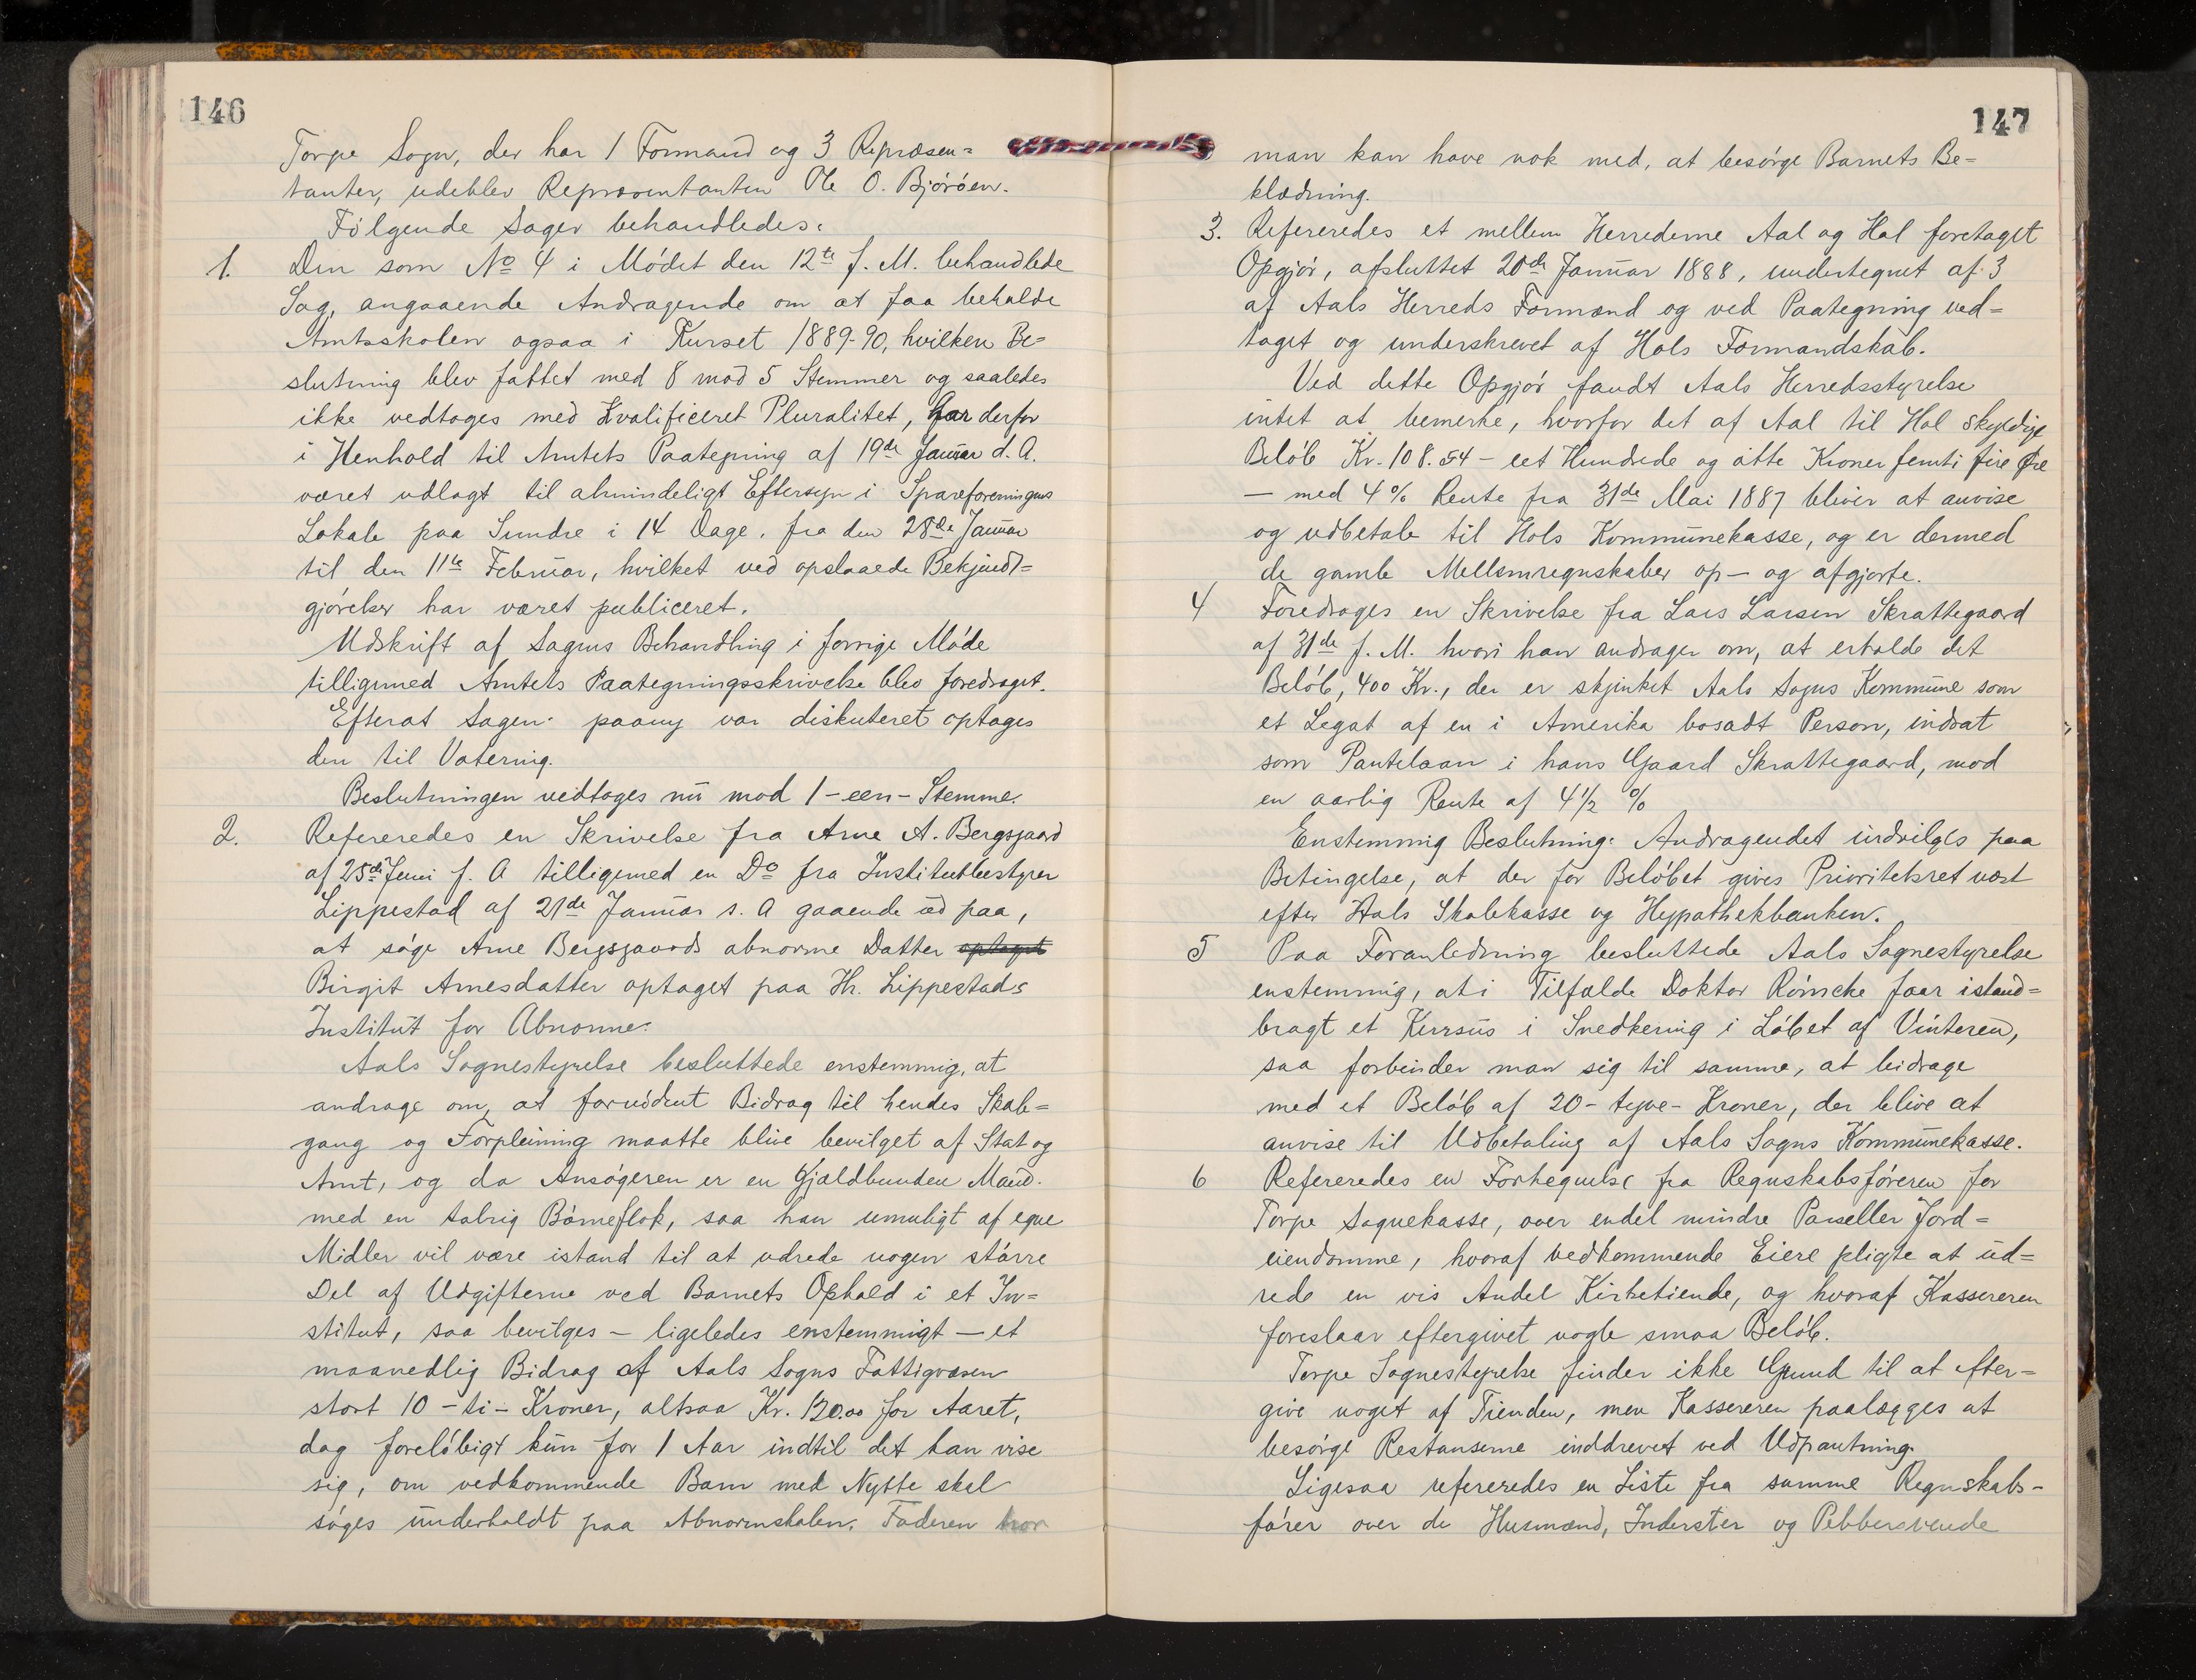 146
Torpe Sogn, der har 1 Formand og 3 Repræsen=
tanter, udeblev Repræsentanten Ole O. Björöen.
Fölgende Sager behandledes:
1. Den som No 4 i Mödet den 12te f. M. behandlede
Sag, angaaende Andragende om at faa beholde
Amtsskolen ogsaa i Kurset 1889-90, hvilken Be=
slutning blev fattet med 8 mod 5 Stemmer og saaledes
ikke vedtoges med Kvalificeret Pluralitet, har derfor
i Henhold til Amtets Paategning af 19de Januar d. A.
været udlagt til almindeligt Eftersyn i Spareforeningens
Lokale paa Sundre i 14 Dage, fra den 28de Januar
til den 11te Februar, hvilket ved opslaaede Bekjendt=
gjörelser har været publiceret.
Udskrift af Sagens Behandling i forrige Möde
tilligemed Amtets Paategningsskrivelse blev foredraget.
Efterat Sagen paany var diskuteret optages
den til Votering.
Beslutningen vedtoges nu mod 1-een-Stemme.
2. Refereredes en Skrivelse fra Arne A. Bergsgaard
af 25de Juni f. A tilligemed en Do fra Institutbestyrer
Lippestad af 21de Januar s. A gaaende ud paa,
at söge Arne Bergsgaards abnorme Datter optaget
Birgit Arnesdatter optaget paa Hr. Lippestads
Institut for Abnorme.
Aals Sognestyrelse besluttede enstemmig, at
andrage om, at fornödent Bidrag til hendes Skole=
gang og Forpleining maatte blive bevilget af Stat og
Amt, og da Ansögeren er en Gjældbunden Mand
med en talrig Börneflok, saa han umuligt af egne
Midler vil være istand til at udrede nogen större
Del af Udgifterne ved Barnets Ophold i et In=
stitut, saa bevilges - ligeledes enstemmigt - et
maanedlig Bidrag af Aals Sogns Fattigvæsen
stort 10 - ti - Kroner, altsaa Kr. 120.00 for Aaret,
dog foreløbigt kun for 1 Aar indtil det kan vise
sig, om vedkommende Barn med Nytte skal
söges underholdt paa Abnormskolen. Faderen tror
147
man kan have nok med, at besörge Barnets Be=
klædning.
3. Refereredes et mellem Herrederne Aal og Hol foretaget
Opgjör, afsluttet 20de Januar 1888, undertegnet af 3
af Aals Herreds Formænd og ved Paategning ved=
taget og underskrevet af Hols Formandskab.
Ved dette Opgjör fandt Aals Herredsstyrelse
intet at bemerke, hvorfor det af Aal til Hol skyldige
Belöb Kr. 108.54 - eet Hundrede og otte Kroner femti fire Øre
- med 4% Rente fra 31de Mai 1887 bliver at anvise
og udbetale til Hols Kommunekasse, og er dermed
de gamle Mellemregnskaber op- og afgjorte.
4 Foredroges en Skrivelse fra Lars Larsen Skrattegaard
af 31de f. M. hvori han andrager om, at erholde det
Belöb, 400 Kr., der er skjenket Aals Sogns Kommune som
et Legat af en i Amerika bosadt Person, indsat
som Pantelaan i hans Gaard Skrattegaard, mod
en aarlig Rente af 4 1/2 %
Enstemmig Beslutning: Andragendet indvilges paa
Betingelse, at der for Belöbet gives Prioritetsret næst
efter Aals Skolekasse og Hypothekbanken.
5 Paa Foranledning besluttede Aals Sognestyrelse
enstemmig, at i Tilfælde Doktor Römcke faar istand=
bragt et Kursus i Snedkering i Löbet af Vinteren,
saa forbinder man sig til samme, at bidrage
med et Belöb af 20 - tyve - Kroner, der blive at
anvise til Udbetaling af Aals Sogns Kommunekasse.
6 Refereredes en Fortegnelse fra Regnskabsföreren for
Torpe Sognekasse, over endel mindre Parseller Jord=
eiendomme, hvoraf vedkommende Eiere pligte at ud=
rede en vis Andel Kirketiende, og hvoraf Kassereren
foreslaar eftergivet nogle smaa Belöb.
Torpe Sognestyrelse finder ikke Grund til at efter=
give noget af Tienden, men Kassereren paalægges at
besörge Restanserne inddrevet ved Udpantning.
Ligesaa refereredes en Liste fra samme Regnskabs-
förer over de Husmænd, Inderster og Pebbersvende